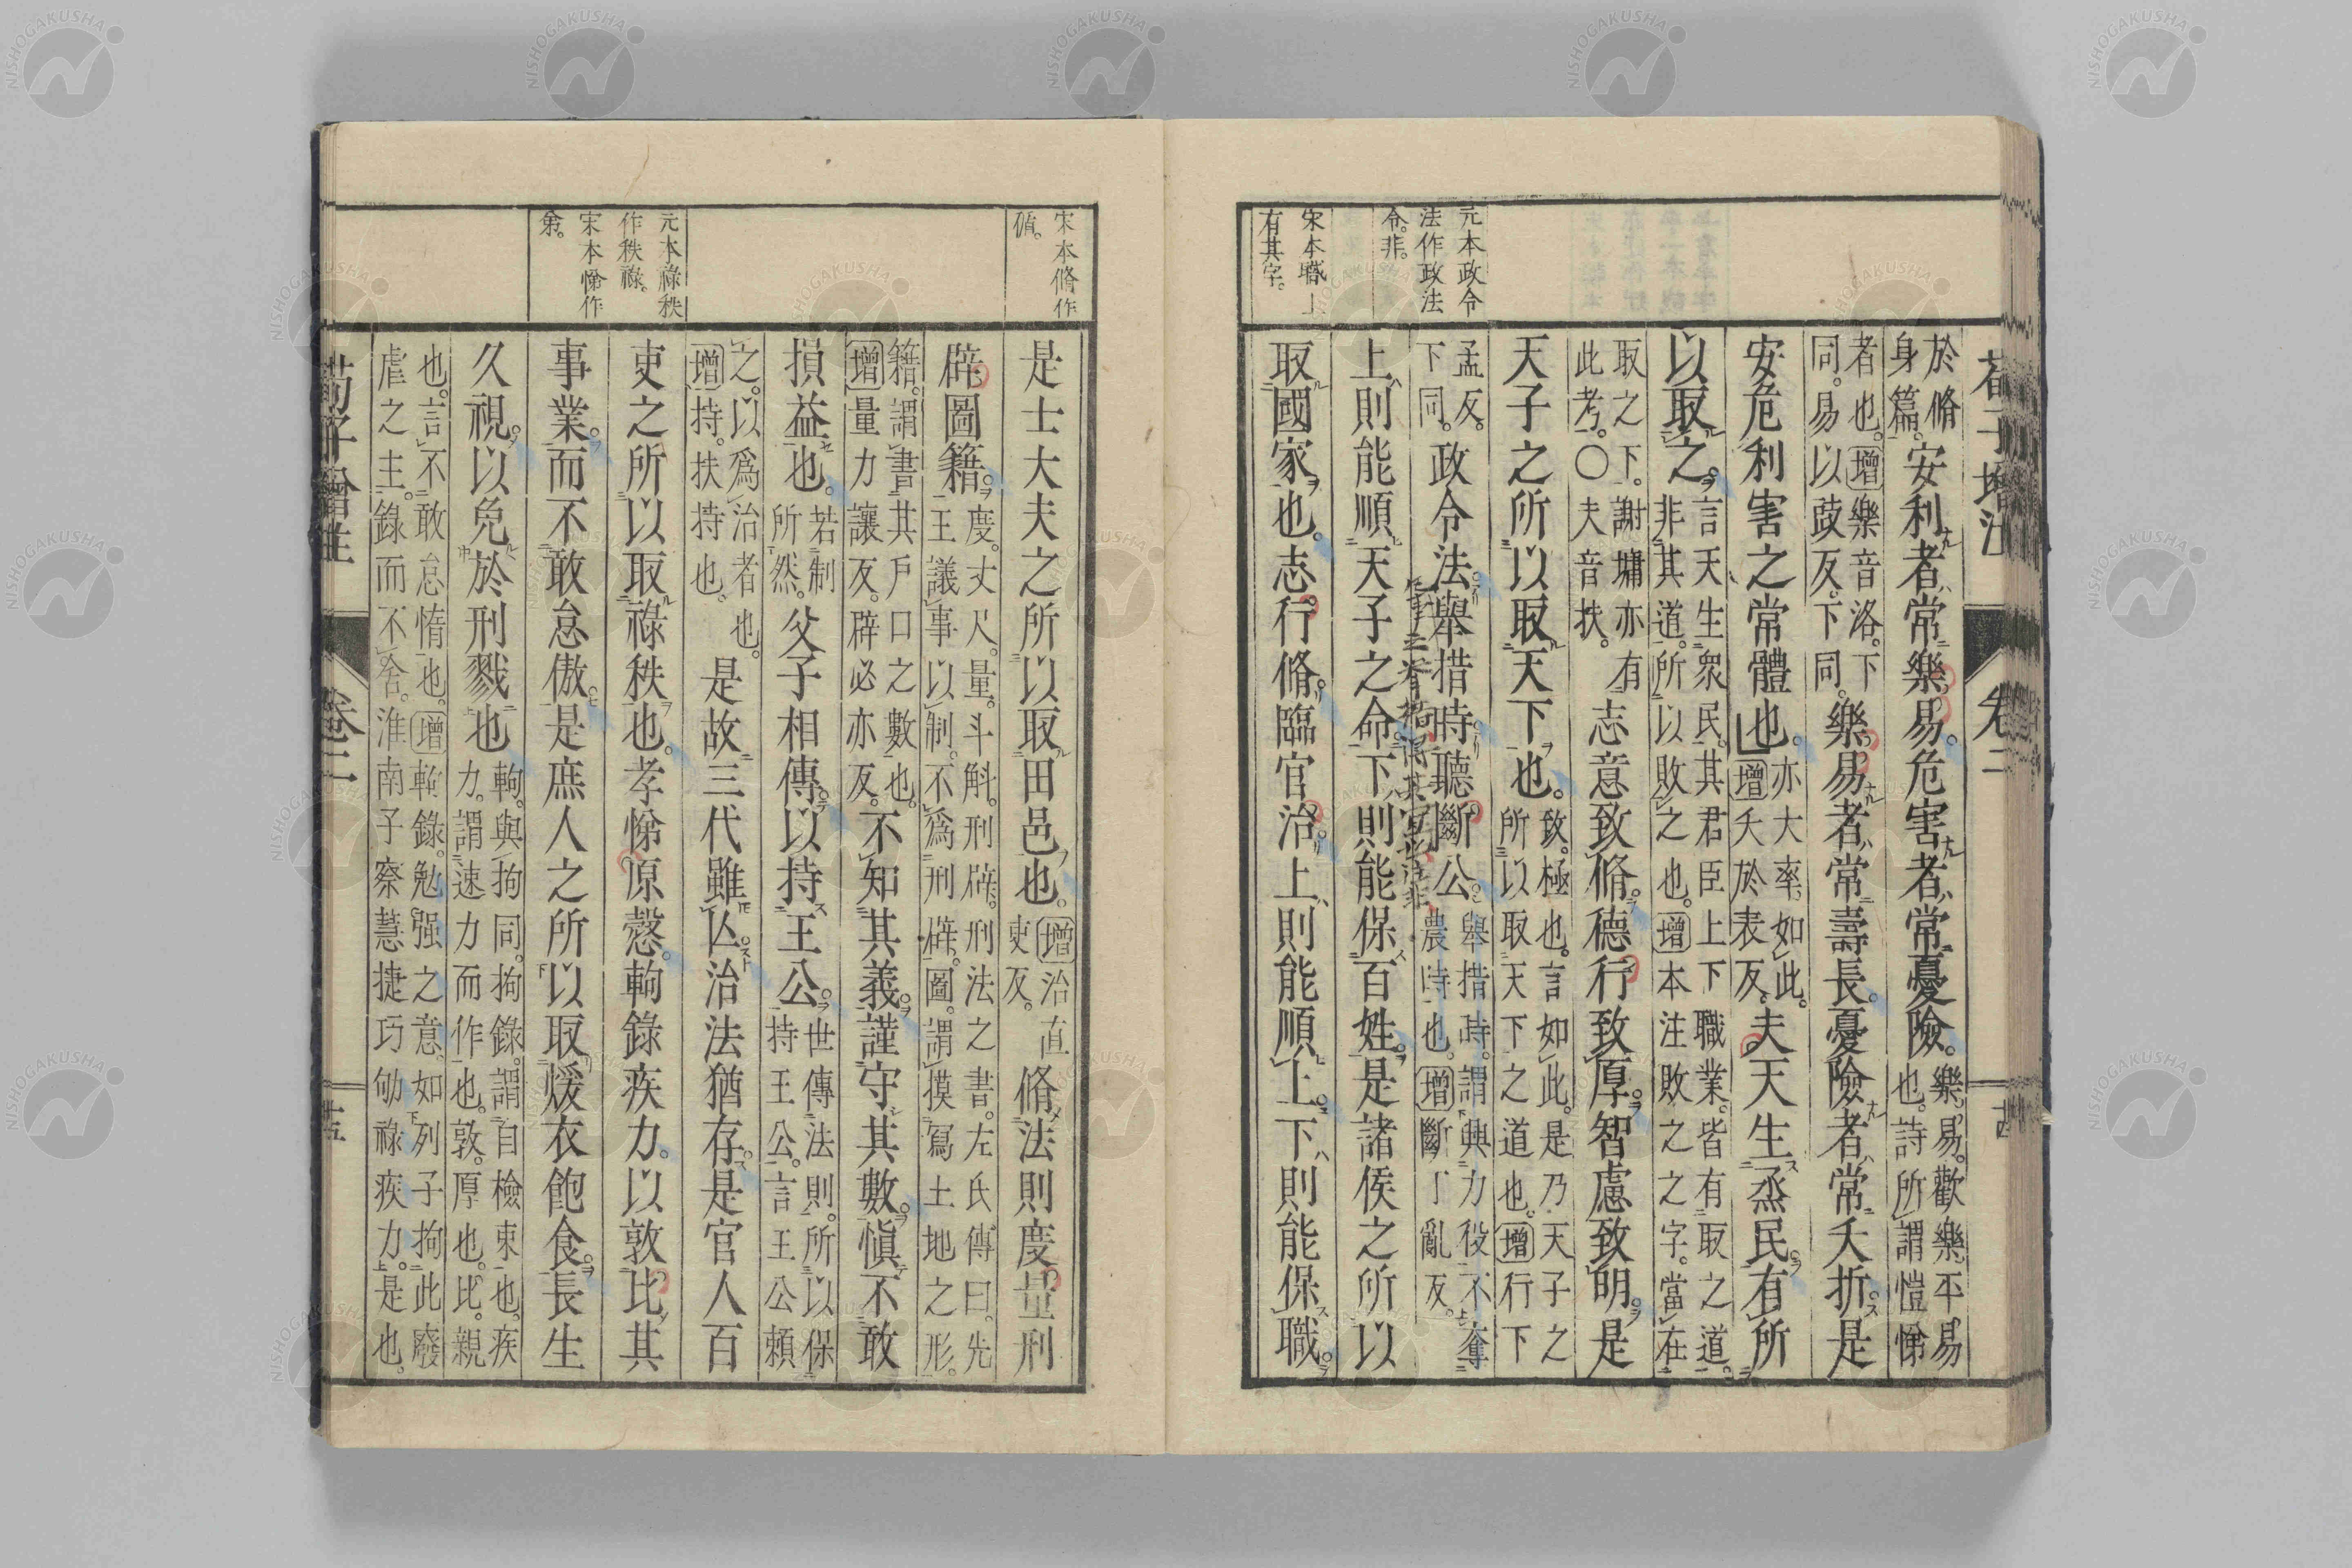 荀子增注　卷二　十四
元本政令
法作政法
令。非。
宋本職上
有其字。
於脩身篇。安利者常樂易。危害者常憂險。樂易。歡樂平易也。詩所謂愷悌
者也。增樂音洛。下同。易以豉反。下同。樂易者常壽長。憂險者常夭折。是
安危利害之常體也。亦大率如此。增夭於表反。夫天生烝民。有所
以取之。言天生衆民。其君臣上下職業。皆有取之道。非其道。所以敗之也。增本注敗之之字。當在
取之下。謝墉亦有此考。○夫音扶。志意致脩。德行致厚。智慮致明。是
天子之所以取天下也。致。極也。言如此。是乃天子之所以取天下之道也。增行下
孟反。下同。政令法。舉措時。聽斷公。舉措時。謂興力役不奪農時也。增斷丁亂反。
上則能順天子之命。下則能保百姓。是諸侯之所以
取國家也。志行脩。臨官治。上則能順上。下則能保職。
宋本脩作
循。
元本祿秩
作秩祿。
宋本悌作
弟。
是士大夫之所以取田邑也。增治直吏反。脩法則度量刑
辟圖籍。度。丈尺。量。斗斛。刑辟。刑法之書。左氏傳曰。先王議事以制。不爲刑辟。圖。謂摸寫土地之形。
籍。謂書其戶口之數也。增量力讓反。辟必亦反。不知其義。謹守其數。愼不敢
損益也。若制所然。父子相傳。以持王公。世傳法則。所以保持王公。言王公賴
之。以爲治者也。增持。扶持也。是故三代雖亾。治法猶存。是官人百
吏之所以取祿秩也。孝悌原愨。軥錄疾力。以敦比其
事業。而不敢怠傲。是庶人之所以取煖衣飽食。長生
久視。以免於刑戮也。軥。與拘同。拘錄。謂自檢束也。疾力。謂速力而作也。敦。厚也。比。親
也。言不敢怠惰也。增軥錄。勉强之意。如列子拘此廢虐之主。錄而不舍。淮南子察慧捷巧劬祿疾力。是也。
荀子增注　卷二　十五